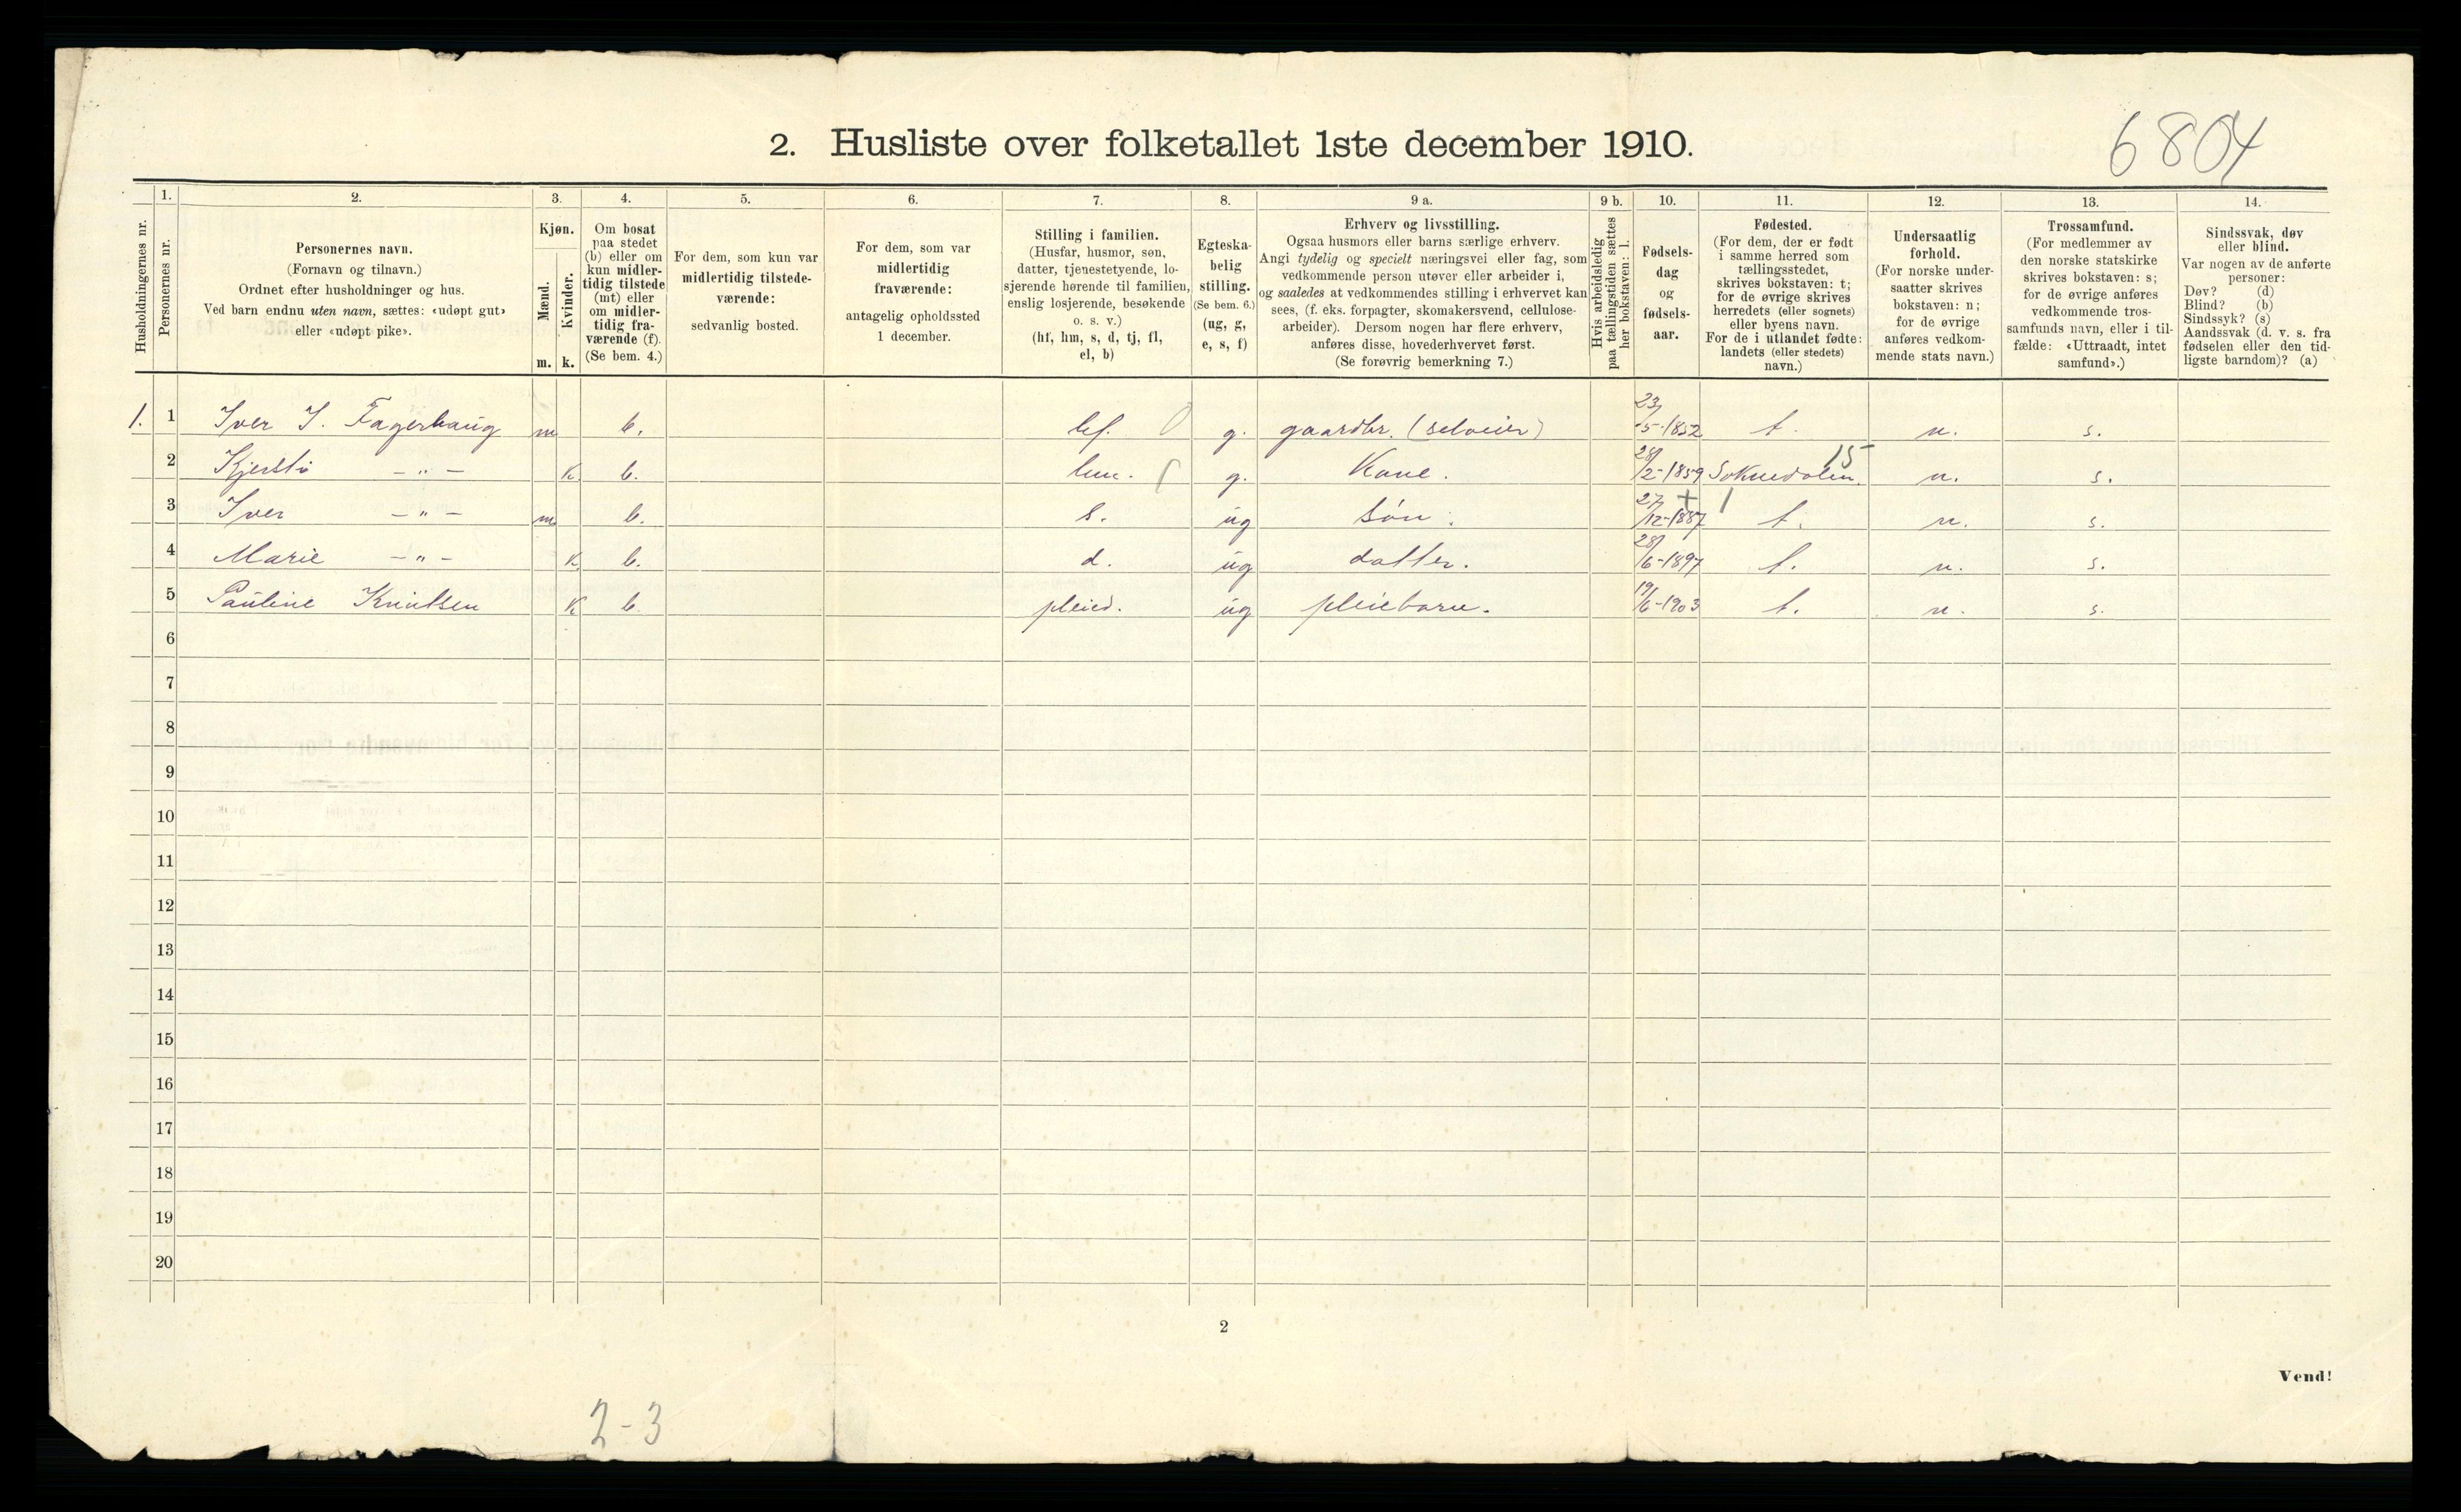 6804
2. Husliste over folketallet 1ste december 1910.
Husholdningernes nr.
1. Personernes nr.
2. Personernes navn.
(Fornavn og tilnavn.)
Ordnet efter husholdninger og hus.
Ved barn endnu uten navn, sættes: «udøpt gut»
eller «udøpt pike».
3. Kjøn.
Mænd. m.
Kvinder. k.
4. Om bosat
paa stedet
(b) eller om
kun midler-
tidig tilstede
(mt) eller
om midler-
tidig fra-
værende (f).
(Se bem. 4.)
5. For dem, som kun var
midlertidig tilstede-
værende:
sedvanlig bosted.
6. For dem, som var
midlertidig
fraværende:
antagelig opholdssted
1 december.
7. Stilling i familien.
(Husfar, husmor, søn,
datter, tjenestetyende, lo-
sjerende hørende til familien,
enslig losjerende, besøkende
o. s. v.)
(hf, hm, s, d, tj, fl,
el, b)
8. Egteska-
belig
stilling.
(Se bem. 6.)
(ug, g,
e, s, f)
9 a. Erhverv og livsstilling.
Ogsaa husmors eller barns særlige erhverv.
Angi tydelig og specielt næringsvei eller fag, som
vedkommende person utøver eller arbeider i,
og saaledes at vedkommendes stilling i erhvervet kan
sees, (f. eks. forpagter, skomakersvend, cellulose-
arbeider). Dersom nogen har flere erhverv,
anføres disse, hovederhvervet først.
(Se forøvrig bemerkning 7.)
9 b. Hvis arbeidsledig
paa tællingstiden sættes
her bokstaven: l.
10. Fødsels-
dag
og
fødsels-
aar.
11. Fødested.
(For dem, der er født
i samme herred som
tællingsstedet,
skrives bokstaven: t;
for de øvrige skrives
herredets (eller sognets)
eller byens navn.
For de i utlandet fødte:
landets (eller stedets)
navn.)
12. Undersaatlig
forhold.
(For norske under-
saatter skrives
bokstaven: n;
for de øvrige
anføres vedkom-
mende stats navn.)
13. Trossamfund.
(For medlemmer av
den norske statskirke
skrives bokstaven: s;
for de øvrige anføres
vedkommende tros-
samfunds navn, eller i til-
fælde: «Uttraadt, intet
samfund».)
14. Sindssvak, døv
eller blind.
Var nogen av de anførte
personer:
Døv? (d)
Blind? (b)
Sindssyk? (s)
Aandssvak (d. v. s. fra
fødselen eller den tid-
ligste barndom)? (a)
1. 1 Iver I. Fagerhaug m b. hf. 0 g. gaardbr. (selveier) 23/5-1852 t. n. s.
2 Kjersti -"- k b. hm. g. Kone. 28/2-1859 Soknedalen. 15 n. s.
3 Iver -"- m b. s. ug Søn. 27/12-1887 t. n. s.
4 Marie -"- k b. d. ug datter. 28/6-1897 t. n. s.
5 Pauline Knutsen k b. pleied. ug pleiebarn. 19/6-1903 t. n. s.
6
7
8
9
10
11
12
13
14
15
16
17
18
19
20
2
Vend!
2-3